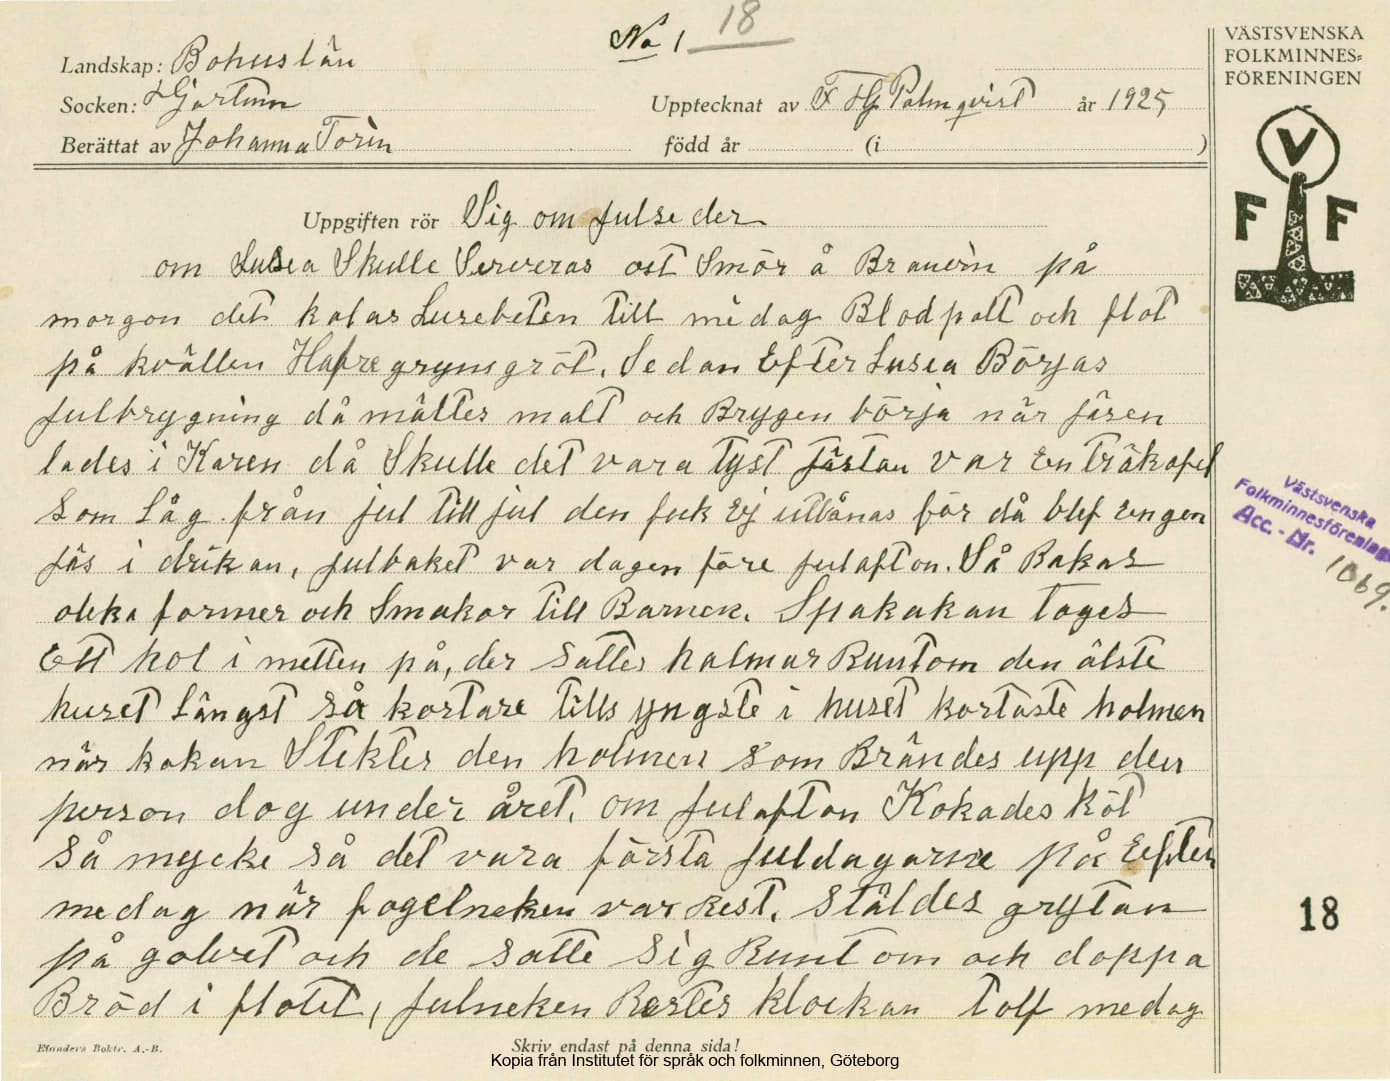 No 1 18
Landskap: Bohuslän
Socken: Hjartum
Upptecknat av F Hj Palmqvist år 1925
Berättat av Johanna Torin
född år (i )
VÄSTSVENSKA
FOLKMINNES=
FÖRENINGEN
V
F F
Uppgiften rör Sig om julseder
om Lusea Skulle Serveras ost Smör å Brauvin på
morgon det kalas Lusebeten till midag Blodpalt och flot
på kvällen Hafregrynsgröt. Sedan Efter Lusia Börjas
julbrygning då mältes malt och Brygen börja når jäsen
lades i Karen då Skulle det vara tyst jästan var en träkafel
Som låg från jul till jul den feck Ej utlånas för då blef Engen
jäs i drikan, julbaket var dagen före julafton. Så Bakas
oleka former och Smakor till Barnen. Spakakan toges
Ett hol i metten på, der Sattes halmar Runtom den älste
huset Längst så kortare tills yngste i huset kortaste holmen
når kakan Stektes den holmen som Brändes upp den
person dog under året. om julafton Kokades köt
Så mycke så det vara första juldagarne på Eften
medag når fogelneken var Rest. Stäldes grytan
på golvet och de satte sig Runt om och doppa
Bröd i flotet, julneken Restes klockan tolf medag
Västsvenska
Folkminnesförening
Acc.-Nr. 1069.
18
Elanders Boktr. A.-B.
Skriv endast på denna sida!
Kopia från Institutet för språk och folkminnen, Göteborg